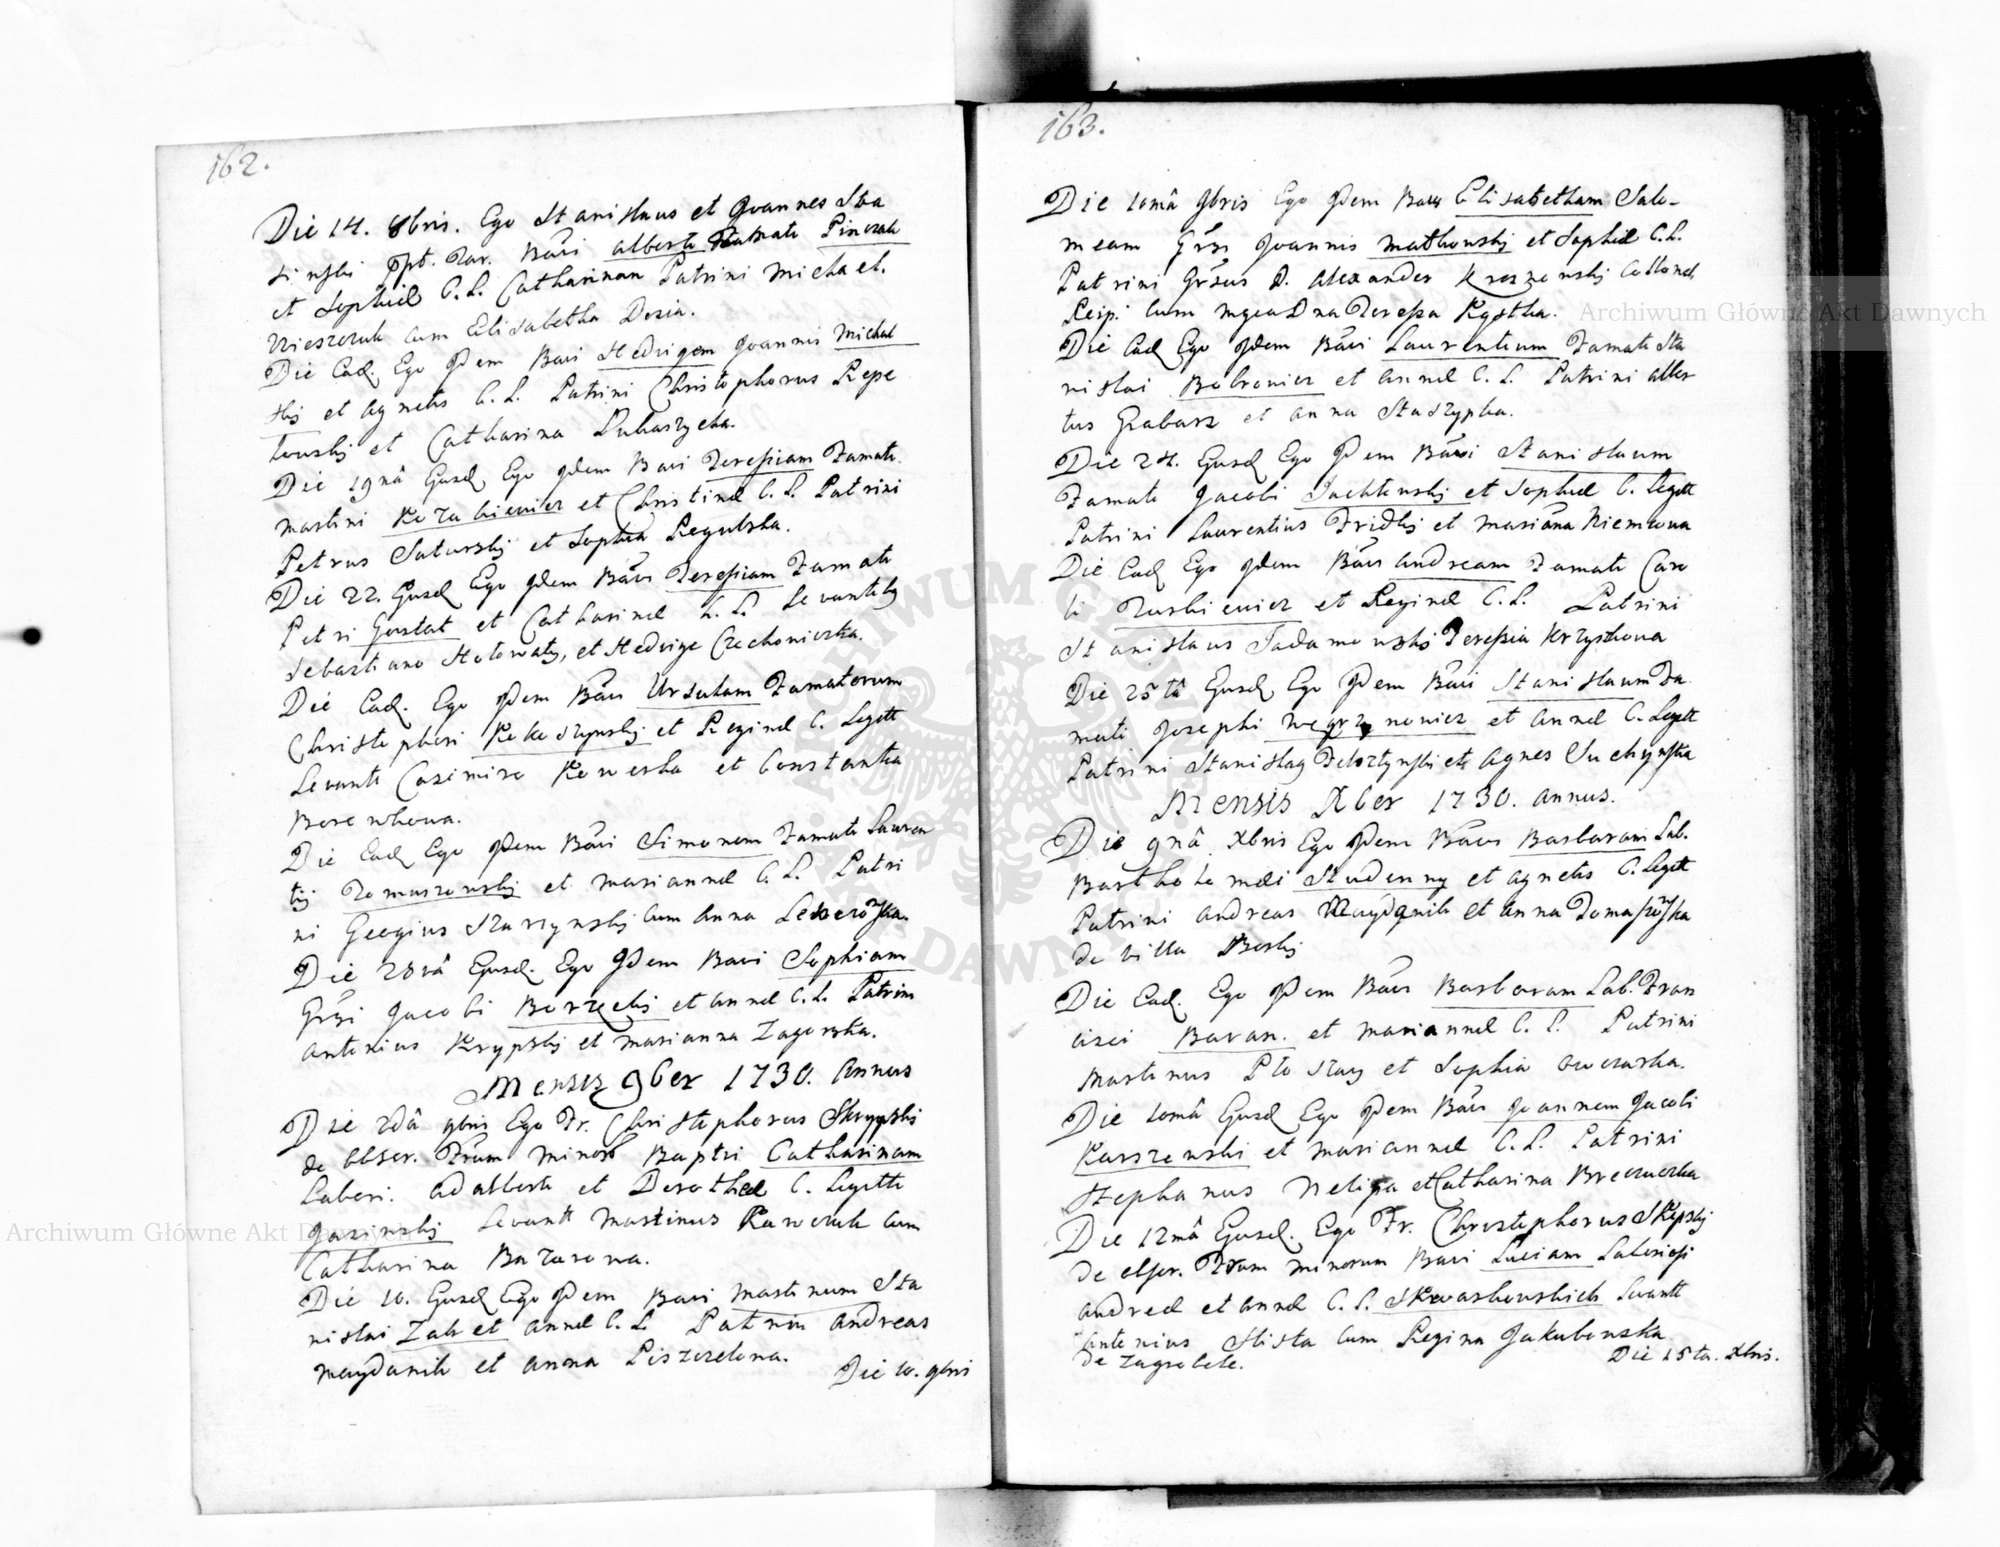 162.
Die 14. 8bris. Ego Stanislaus et Joannes Sta
sinski ppt. Tar. Bavi Alberti Famati Pinczak
et Sophiæ C. L. Catharinam Patrini Michael
Nieszczuk cum Elisabetha Dozia.
Die Ead. Ego Idem Bavi Hedvigem Joannis Michal
skij et Agnetis C. L. Patrini Christophorus Repe
towskij et Catharina Lukaszycka.
Die 19nâ Ejusd Ego Idem Bavi Teressiam Famati
Martini Korabiewicz et Christinæ C. L. Patrini
Petrus Saturskij et Sophia Regulska.
Die 22. Ejusd Ego Idem Bavi Teressiam Famati
Petri Gustat et Catharinæ C. L. Levantibg
Sebastiano Hotowaty, et Hedvige Czechoniczka.
Die Ead. Ego Idem Bavi Ursulam Famatorum
Christophori Kokoszynskij et Reginæ C. Legitt
Levante Casimiro Kowerka et Constantia
Borenkowa.
Die Ead Ego Idem Bavi Simonem Famati Lauren
tij Tomaszewskij et Mariannæ C. L. Patri
ni Geogius Starzynskij cum Anna
Die 28vâ Ejusd. Ego Idem Bavi Sophiam
Grsi Jacobi Borzeckij et Annæ C. L. Patrini
Antonius Krypskij et Marianna Zagorska.
Mensis 9ber 1730. Annus
Die 2dâ 9bris Ego Fr. Christophorus Skrypskij
de obser. Frum Minorū Baptri Catharinam
Labori. Adalberti et Dorotheæ C. Legitte
Jasinskij Levantt Martinus Karwczuk cum
Catharina Bazarowa.
Die 10. Ejusd Ego Idem Bavi Martinum Sta
nislai Zak et Annæ C. L. Patrini Andreas
Maydanik et Anna Piszczelowa.
Die 10. 9bris
163.
Die 10mâ 9bris Ego Idem Bavi Elisabetham Salo-
meam Grsi Joannis Matkowskij et Sophiæ C. L.
Patrini Grsus D. Alexander Kroszewskij Collonel
Reip. cum Mgca Dna Teressa Kystka.
Die Ead Ego Idem Bavi Laurentium Famati Sta
nislai Bobrowicz et Annæ C. L. Patrini Alber
tus Grabarz et Anna Staszypka.
Die 24. Ejusd Ego Idem Bavi Stanislaum
Famati Jacobi Jachtowskij et Sophiæ C. Legitt
Patrini Laurentius Fridkij et Mariana Niemcowa
Die Ead Ego Idem Bavi Andream Famati Caro
li Turkiewicz et Reginæ C. L. Patrini
Stanislaus Sadamowski Teressia Krzystkowa
Die 25tâ Ejusd Ego Idem Bavi Stanislaum Fa
mati Josephi Węgrzynowicz et Annæ C. Legitt
Patrini Stanislag et Agnes Suchynska
Mensis Xber 1730. Annus.
Die 9nâ Xbris Ego Idem Bavi Barbaram Lab.
Bartholomæi Studenny et Agnetis C. Legitt
Patrini Andreas Maydanik et Anna Tomaszowska
de villa Borki
Die Ead. Ego Idem Bavi Barbaram Lab. Fran
cisci Baran. et Mariannæ C. L. Patrini
Martinus Ptoszay et Sophia Owczarka.
Die 10mâ Ejusd Ego Idem Bavi Joannem Jacobi
Karszewski et Mariannæ C. L. Patrini
Stephanus Nelipa et Catharina Breczuczka
Die 12mâ Ejusd. Ego Fr. Christophorus Skrypskij
de obser. Frum Minorum Bavi Luciam Laboriosi
Andreæ et Annæ C. L. Skwarkowskich Levantt
Antonius Slista cum Regina Jakubowska
de Zagrobele.
Die 15ta. Xbris.